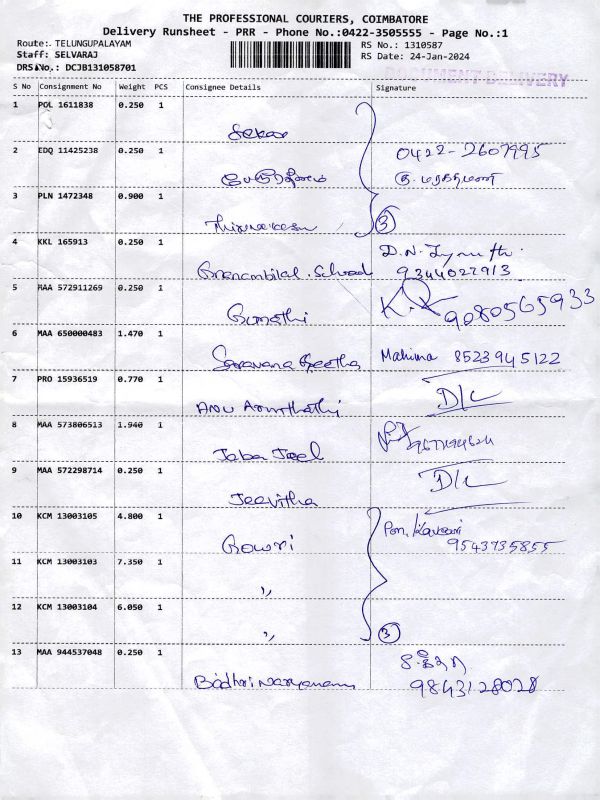 THE PROFESSIONAL COURIERS, COIMBATORE
Delivery Runsheet - PRR - Phone No.:0422-3505555 - Page No.:1
Route: TELUNGUPALAYAM
Staff: SELVARAJ
DRS No.: DCJB131058701
RS No.: 1310587
RS Date: 24-Jan-2024
DOCUMENT DELIVERY
S No Consignment No Weight PCS Consignee Details Signature
1 POL 1611838 0.250 1
2 EDQ 11425238 0.250 1 0422-2607995
3 PLN 1472348 0.900 1 3
4 KKL 165913 0.250 1
9344027913
5 MAA 572911269 0.250 1 Gumathi 9080565933
6 MAA 650000483 1.470 1 Saravana Geetha Mahima 8523945122
7 PRO 15936519 0.770 1 Anu Arunthathi D/L
8 MAA 573806513 1.940 1 Jaba Joel
9 MAA 572298714 0.250 1 Jeevitha D/L
10 KCM 13003105 4.800 1 Gowri 9543735855
11 KCM 13003103 7.350 1 "
12 KCM 13003104 6.050 1 " 3
13 MAA 944537048 0.250 1 Badhri narayanan 9843128028